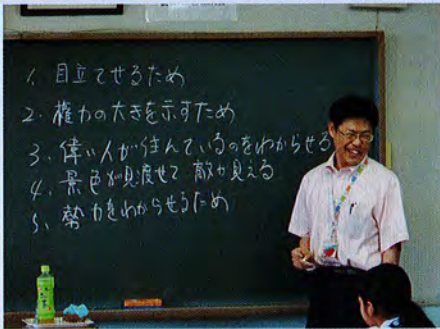 1. 目立てせるため
2. 権力の大きを示すため
3. 偉い人が住んでいるのをわからせる
4. 景色が見渡せて 敵が見える
5. 勢力をわからせるため